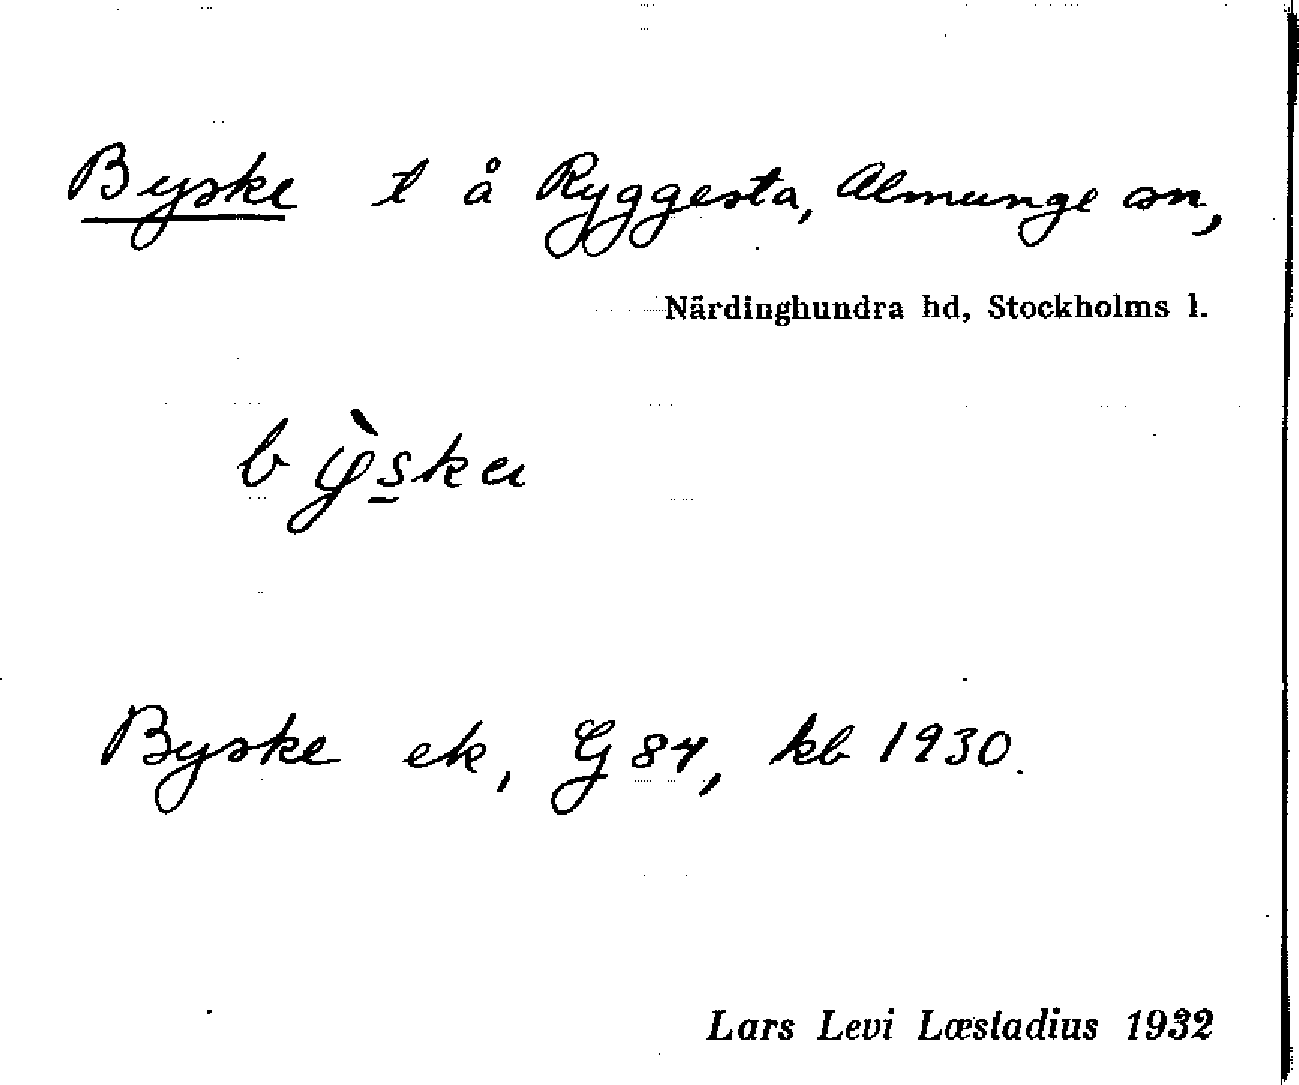 Byske t å Ryggesta, Almunge sn,
Närdinghundra hd, Stockholms l.
bỳska
Byske ek, G 84, kb 1930.
Lars Levi Læstadius 1932